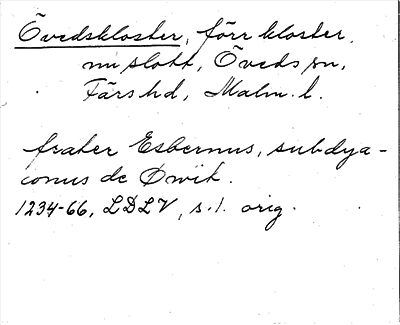 Övedskloster, förr kloster,
nu slott, Öveds sn,
Färs hd, Malm. l.
frater Esbernus, subdya-
conus de Øwit.
1234-66, LDLV, s. 1. orig.